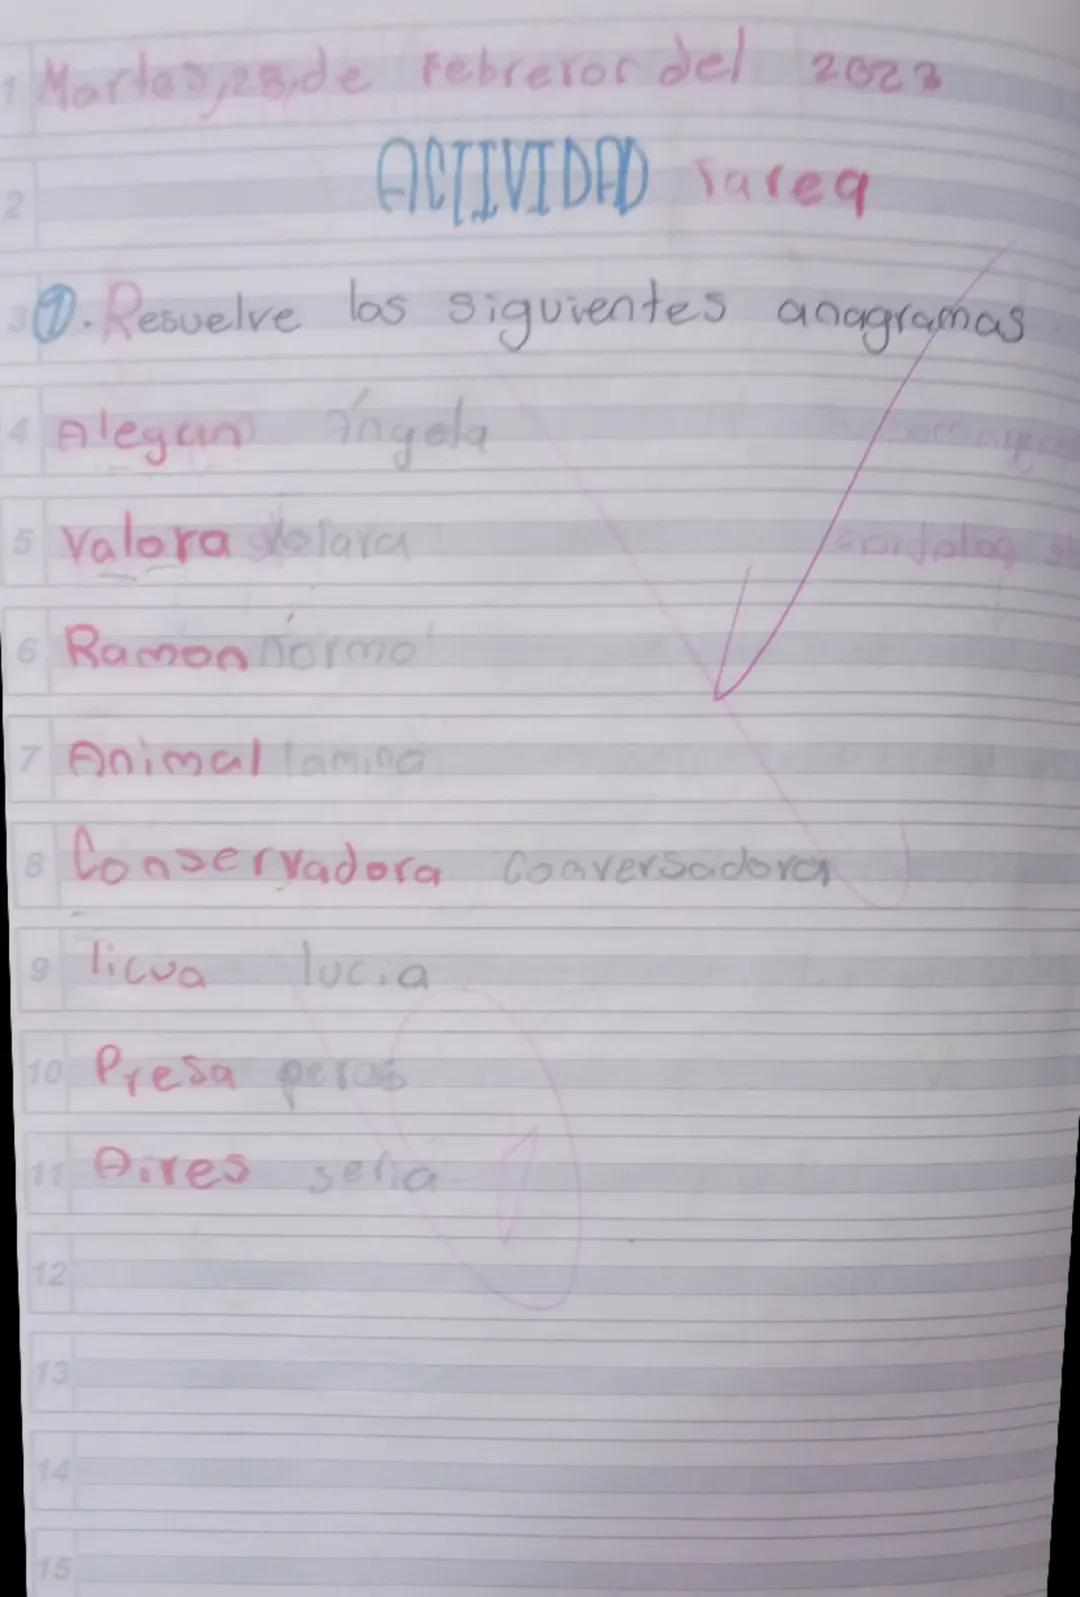 1 Martes, 28, de Febreror del 2023
2 ACTIVIDAD Tarea
3 1. Resuelve los siguientes anagramas
4 Alegan ángela
5 Valora Volara
6 Ramon normo
7 Animal lamina
8 Conservadora Conversadora
9 licua lucia
10 Presa peras
11 Aires seria
12
13
14
15